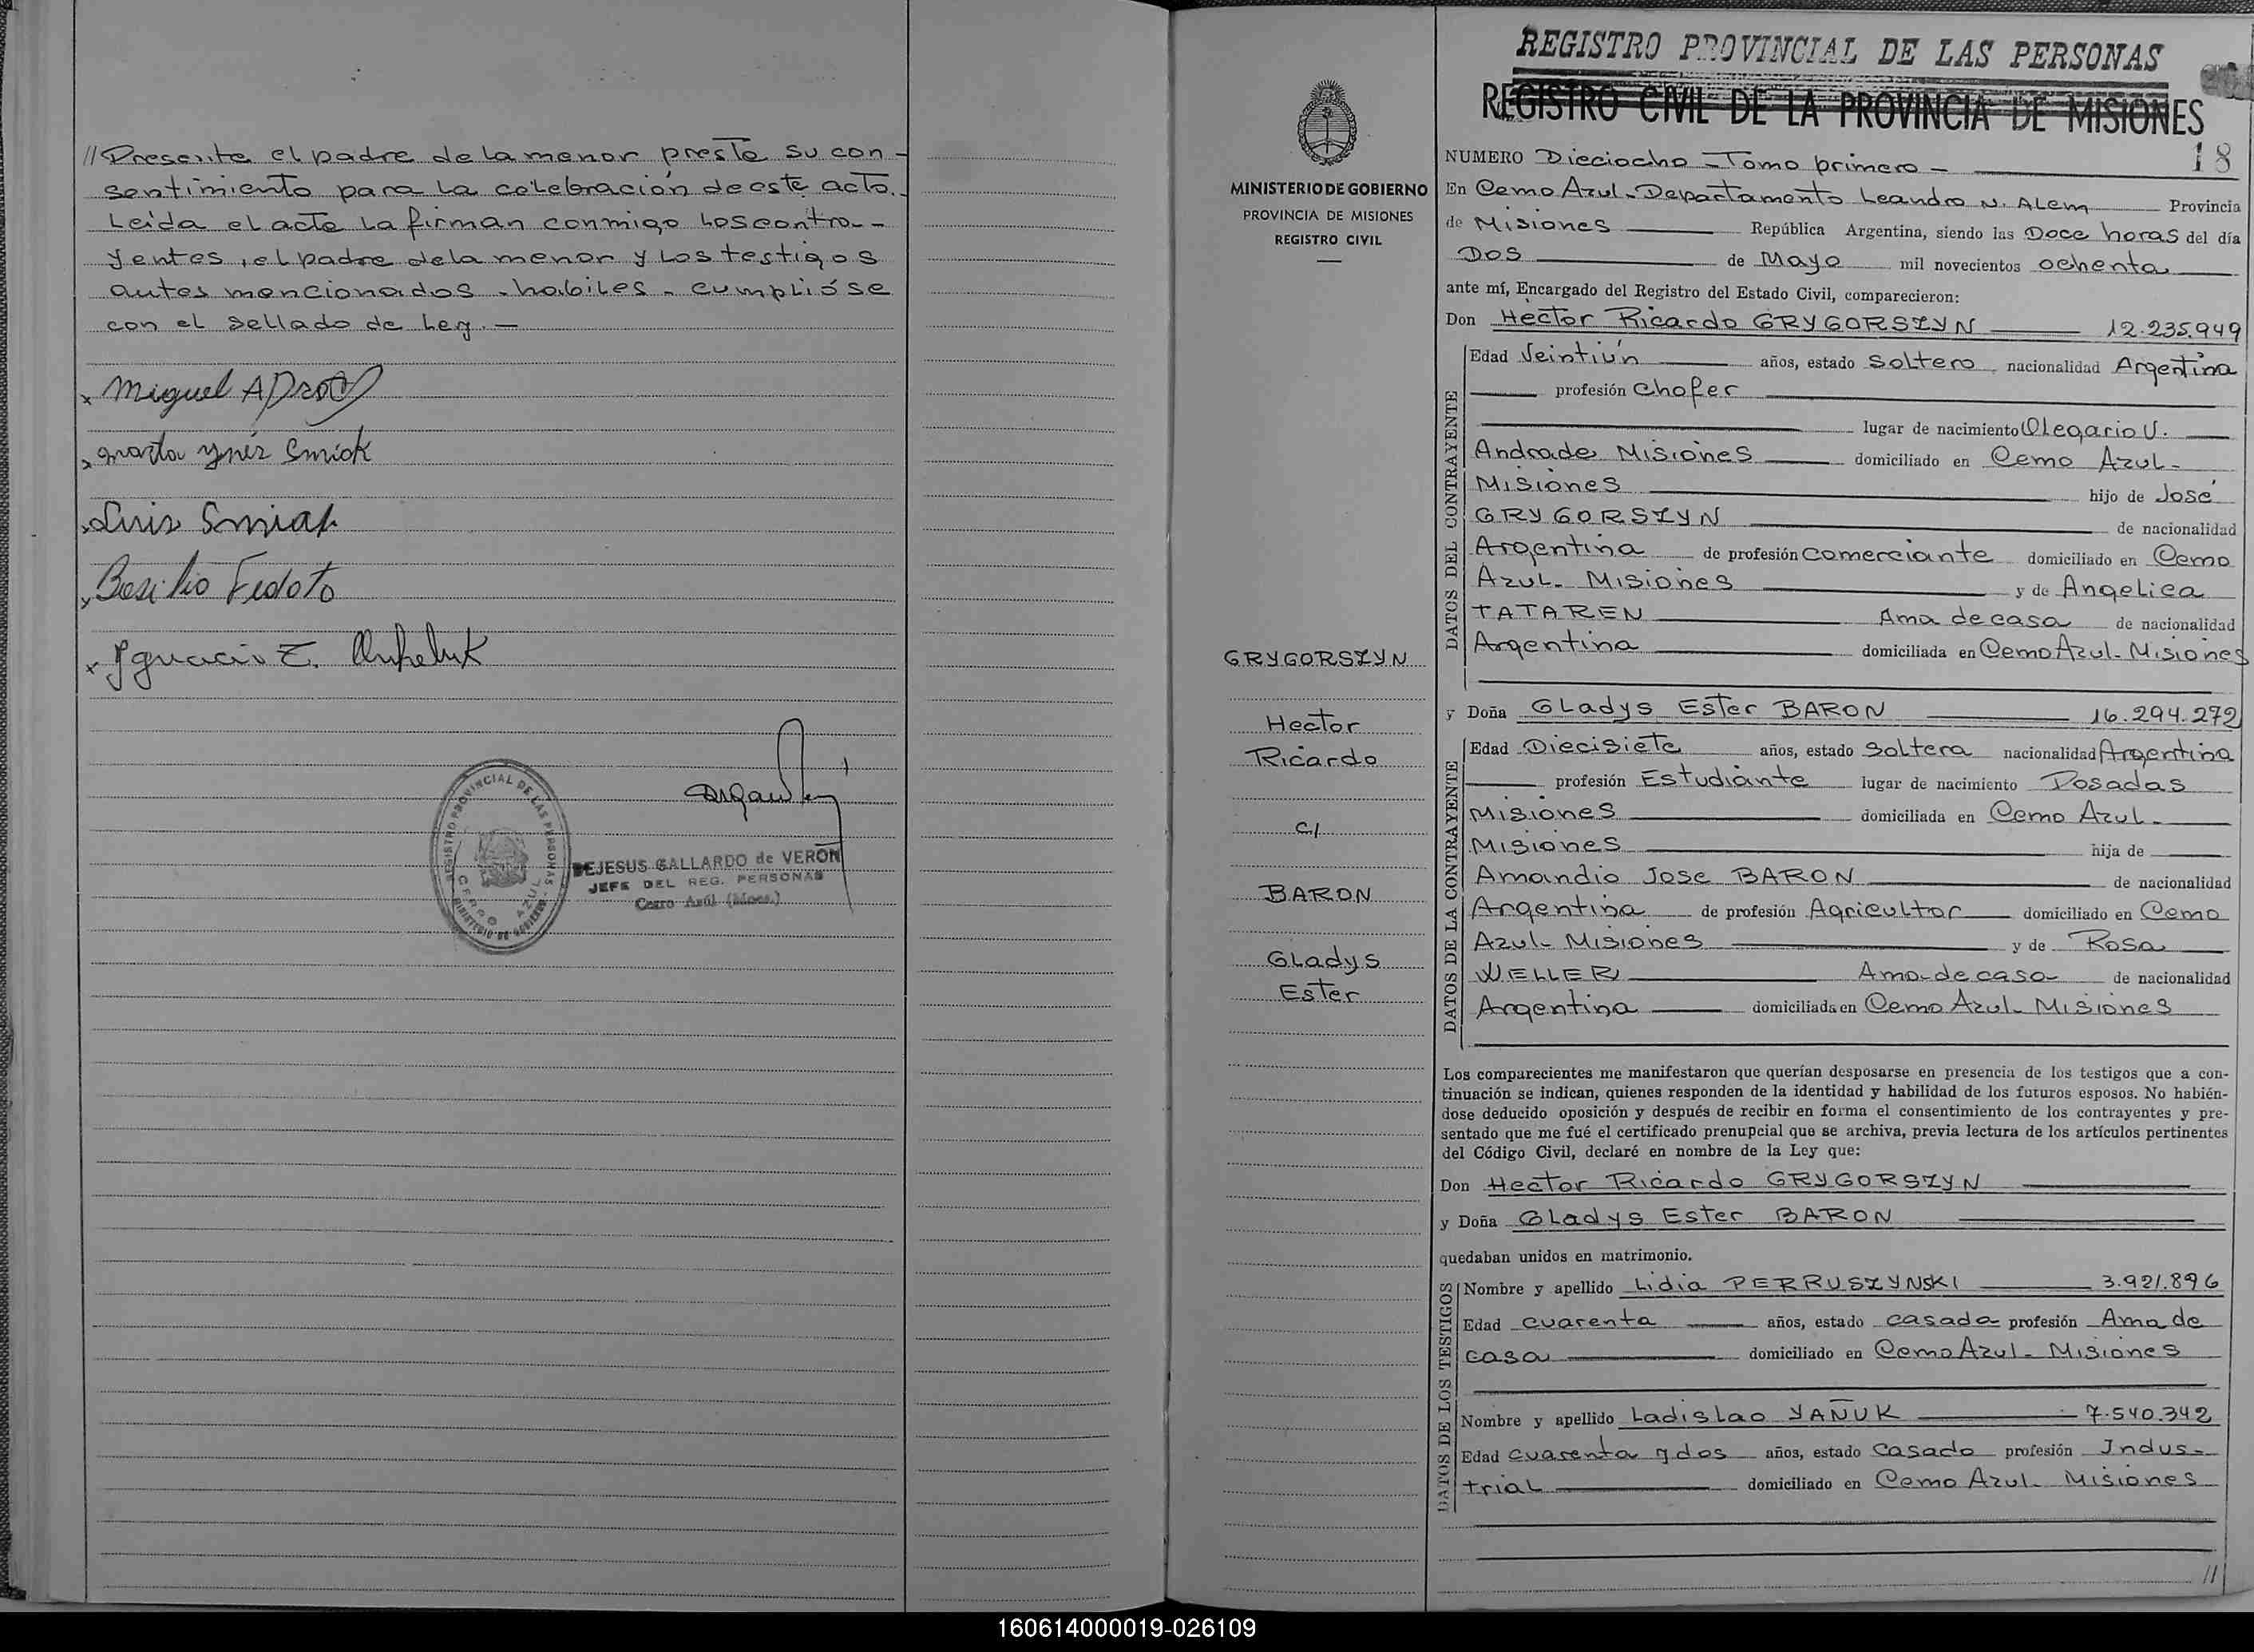 // Presente el padre de la menor preste su con-
sentimiento para la celebración de este acto.
Leída el acta la firman conmigo los contra-
yentes, el padre de la menor y los testigos
antes mencionados - habiles - cumplióse
con el sellado de Ley.—
x Miguel A
x Marta Ynés Smiak
x Luis Smiak
x Basilio Fedoto
x Ygnacio E.
REGISTRO PROVINCIAL DE LAS PERSONAS
CERRO AZUL
MINISTERIO DE GOBIERNO
DEJESUS GALLARDO de VERON
JEFE DEL REG. PERSONAS
Cerro Azúl (Mnes.)
MINISTERIO DE GOBIERNO
PROVINCIA DE MISIONES
REGISTRO CIVIL
GRYGORSZYN
Hector
Ricardo
c/
BARON
Gladys
Ester
REGISTRO PROVINCIAL DE LAS PERSONAS
REGISTRO CIVIL DE LA PROVINCIA DE MISIONES
NUMERO Dieciocho - Tomo primero - 18
En Cerro Azul - Departamento Leandro N. Alem Provincia
de Misiones República Argentina, siendo las Doce horas del día
Dos de Mayo mil novecientos ochenta
ante mí, Encargado del Registro del Estado Civil, comparecieron:
Don Hector Ricardo GRYGORSZYN 12.235.949
DATOS DEL CONTRAYENTE
Edad Veintiún años, estado Soltero nacionalidad Argentina
profesión Chofer
lugar de nacimiento Olegario V.
Andrade Misiones domiciliado en Cerro Azul-
Misiones hijo de José
GRYGORSZYN de nacionalidad
Argentina de profesión Comerciante domiciliado en Cerro
Azul- Misiones y de Angelica
TATAREN Ama de casa de nacionalidad
Argentina domiciliada en Cerro Azul- Misiones
y Doña Gladys Ester BARON 16.294.272
DATOS DE LA CONTRAYENTE
Edad Diecisiete años, estado Soltera nacionalidad Argentina
profesión Estudiante lugar de nacimiento Posadas
Misiones domiciliada en Cerro Azul-
Misiones hija de
Amandio Jose BARON de nacionalidad
Argentina de profesión Agricultor domiciliado en Cerro
Azul- Misiones y de Rosa
WELLER Ama de casa de nacionalidad
Argentina domiciliada en Cerro Azul- Misiones
Los comparecientes me manifestaron que querían desposarse en presencia de los testigos que a con-
tinuación se indican, quienes responden de la identidad y habilidad de los futuros esposos. No habién-
dose deducido oposición y después de recibir en forma el consentimiento de los contrayentes y pre-
sentado que me fué el certificado prenupcial que se archiva, previa lectura de los artículos pertinentes
del Código Civil, declaré en nombre de la Ley que:
Don Hector Ricardo GRYGORSZYN
y Doña Gladys Ester BARON
quedaban unidos en matrimonio.
DATOS DE LOS TESTIGOS
Nombre y apellido Lidia PERRUSZYNSKI 3.921.896
Edad cuarenta años, estado casada profesión Ama de
casa domiciliado en Cerro Azul- Misiones
Nombre y apellido Ladislao YAÑUK 7.540.342
Edad cuarenta y dos años, estado casado profesión Indus-
trial domiciliado en Cerro Azul- Misiones
//
160614000019-026109